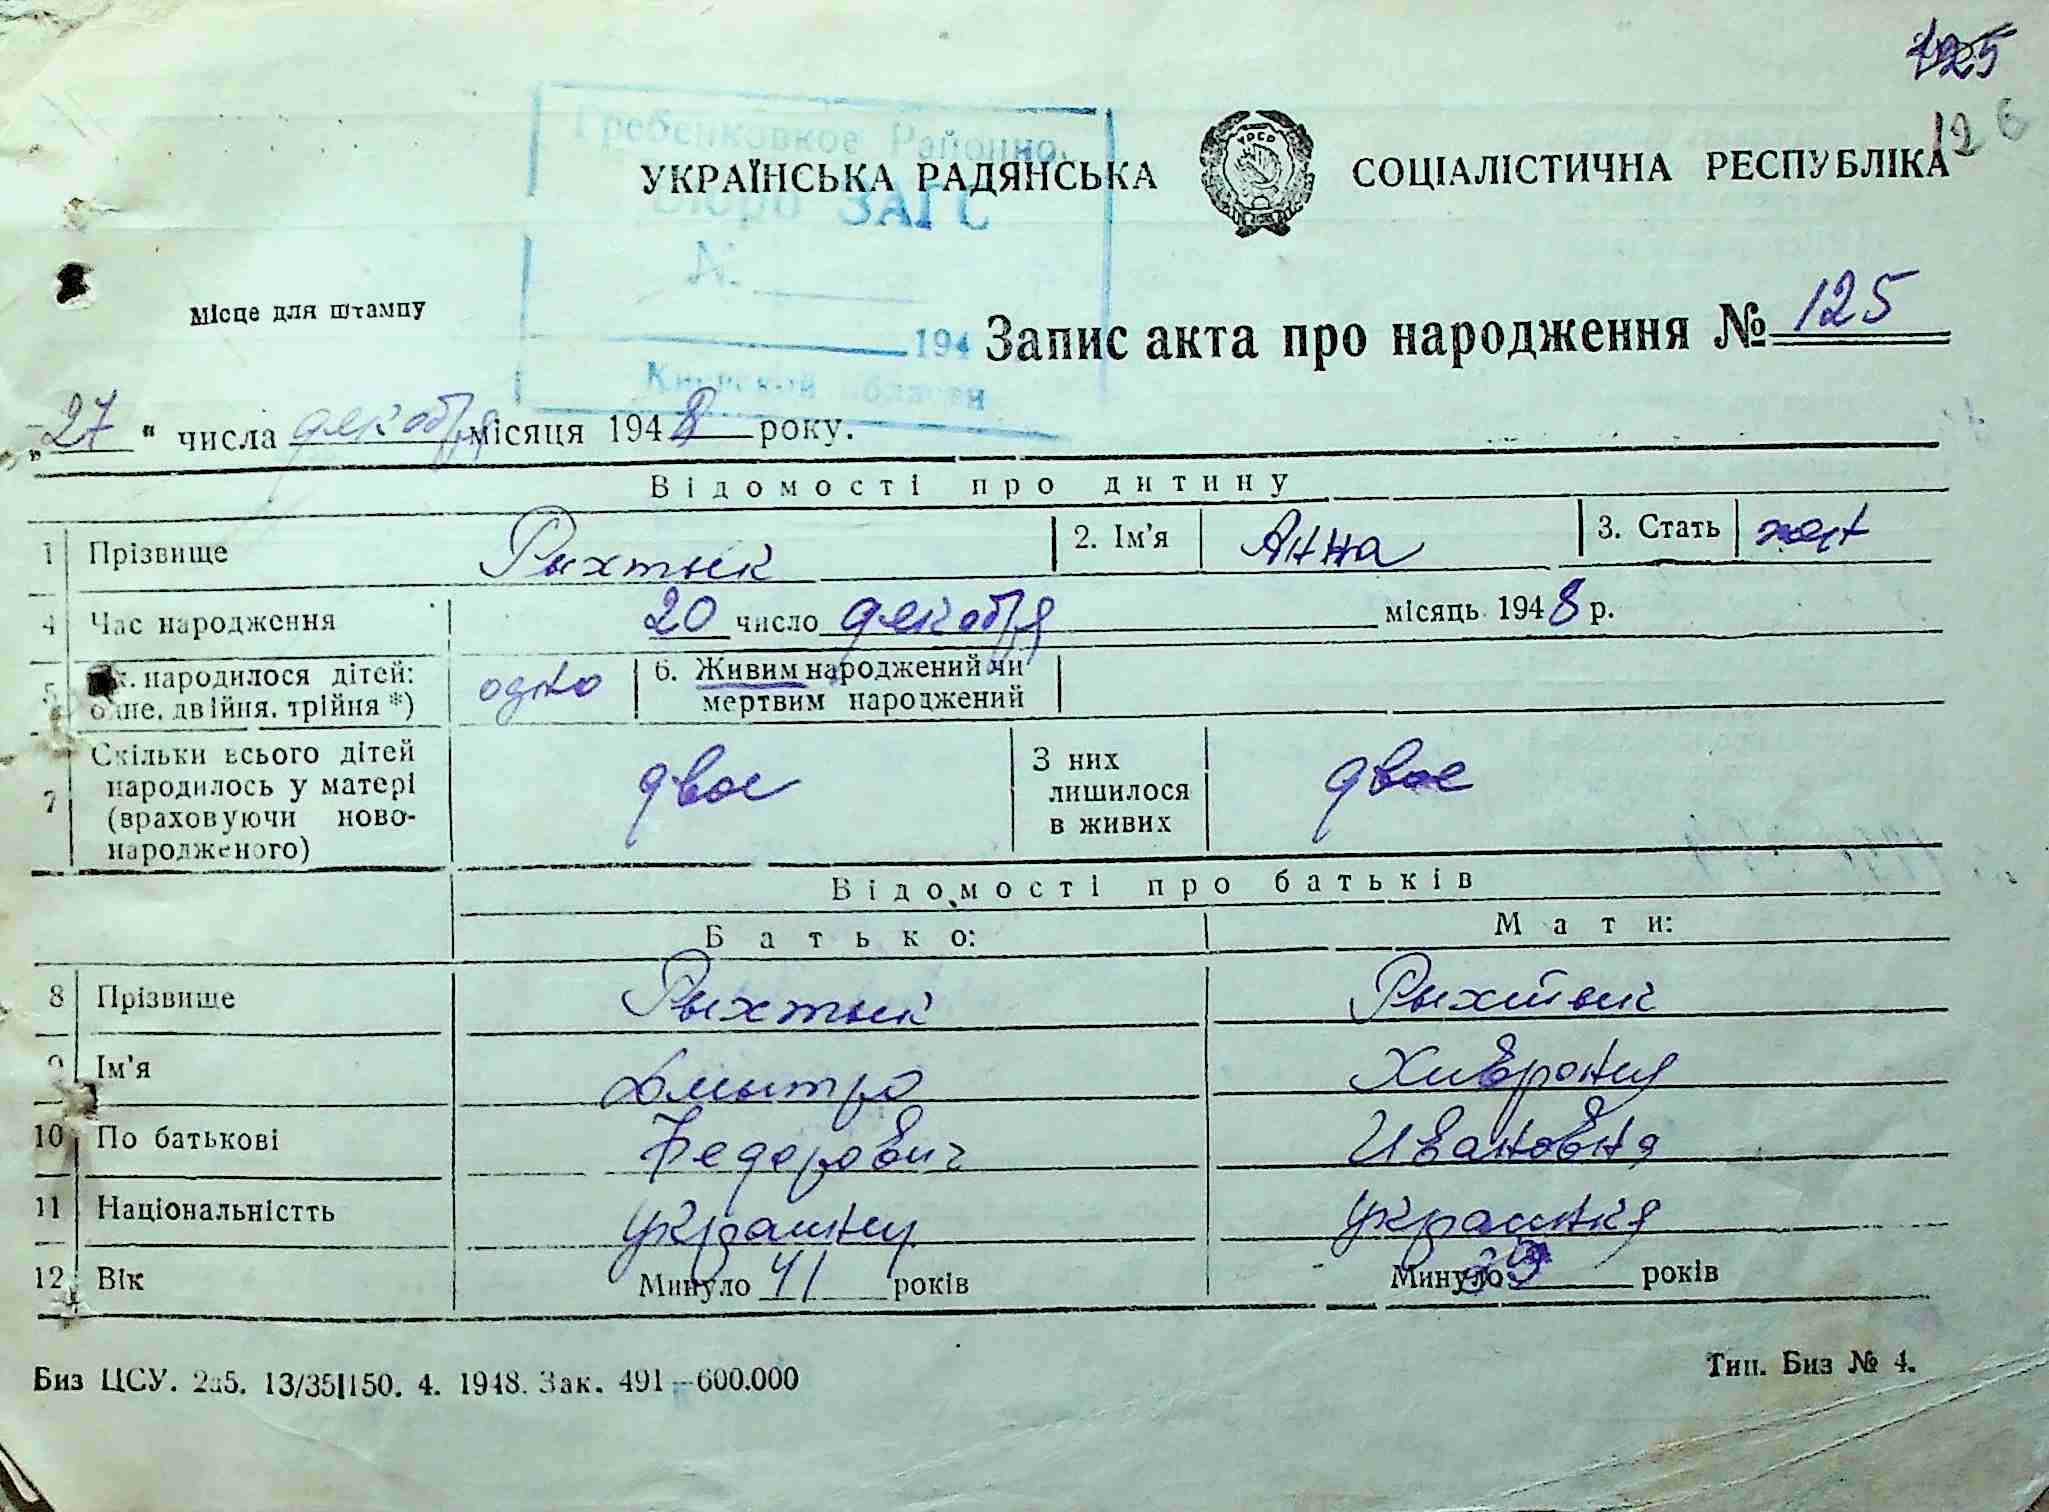 125
126
Гребенковкое Районно.
Бюро ЗАГС
N.
194
Киевской области
УКРАЇНСЬКА РАДЯНСЬКА СОЦІАЛІСТИЧНА РЕСПУБЛІКА
УРСР
Місце для штампу
Запис акта про народження № 125
„27“ числа декабря місяця 1948 року.
Відомості про дитину
1 Прізвище Рыхтык 2. Ім'я Анна 3. Стать жен
4 Час народження 20 число декабря місяць 1948 р.
5 народилося дітей: одне, двійня, трійня *) одно 6. Живим народжений чи мертвим народжений
7 Скільки всього дітей народилось у матері (враховуючи ново-народженого) двое З них лишилося в живих двое
Відомості про батьків
Батько: Мати:
8 Прізвище Рыхтык Рыхтык
9 Ім'я Дмытро Хивроня
10 По батькові Федорович Ивановна
11 Національністть украинец украинка
12 Вік Минуло 41 років Минуло 39 років
Биз ЦСУ. 2а5. 13/35|150. 4. 1948. Зак. 491—600.000
Тип. Биз № 4.